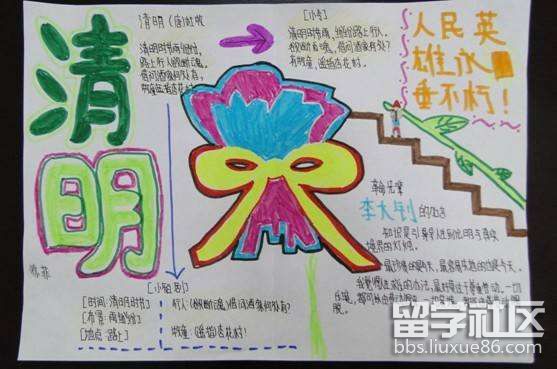 清
明
清明（唐）杜牧
清明时节雨纷纷，
路上行人欲断魂。
借问酒家何处有，
牧童遥指杏花村。
[小令]
清明时节雨，纷纷路上行人，
欲断魂。借问酒家何处？
有牧童，遥指杏花村。
人民英
雄永
垂不朽！
李大钊的名言
知识是引导人生到光明与真实
境界的灯烛。
[小短剧]
[时间：清明时节]
[布景：雨纷纷]
[地点：路上]
行人：（欲断魂）借问酒家何处有？
牧童：遥指杏花村！
留学社区
bbs.liuxue86.com